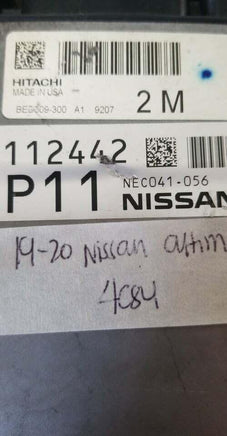 HITACHI
MADE IN USA
BED009-300 A1 9207
2 M
112442
P11 NEC041-056
NISSAN
19-20 Nissan altim
4C84